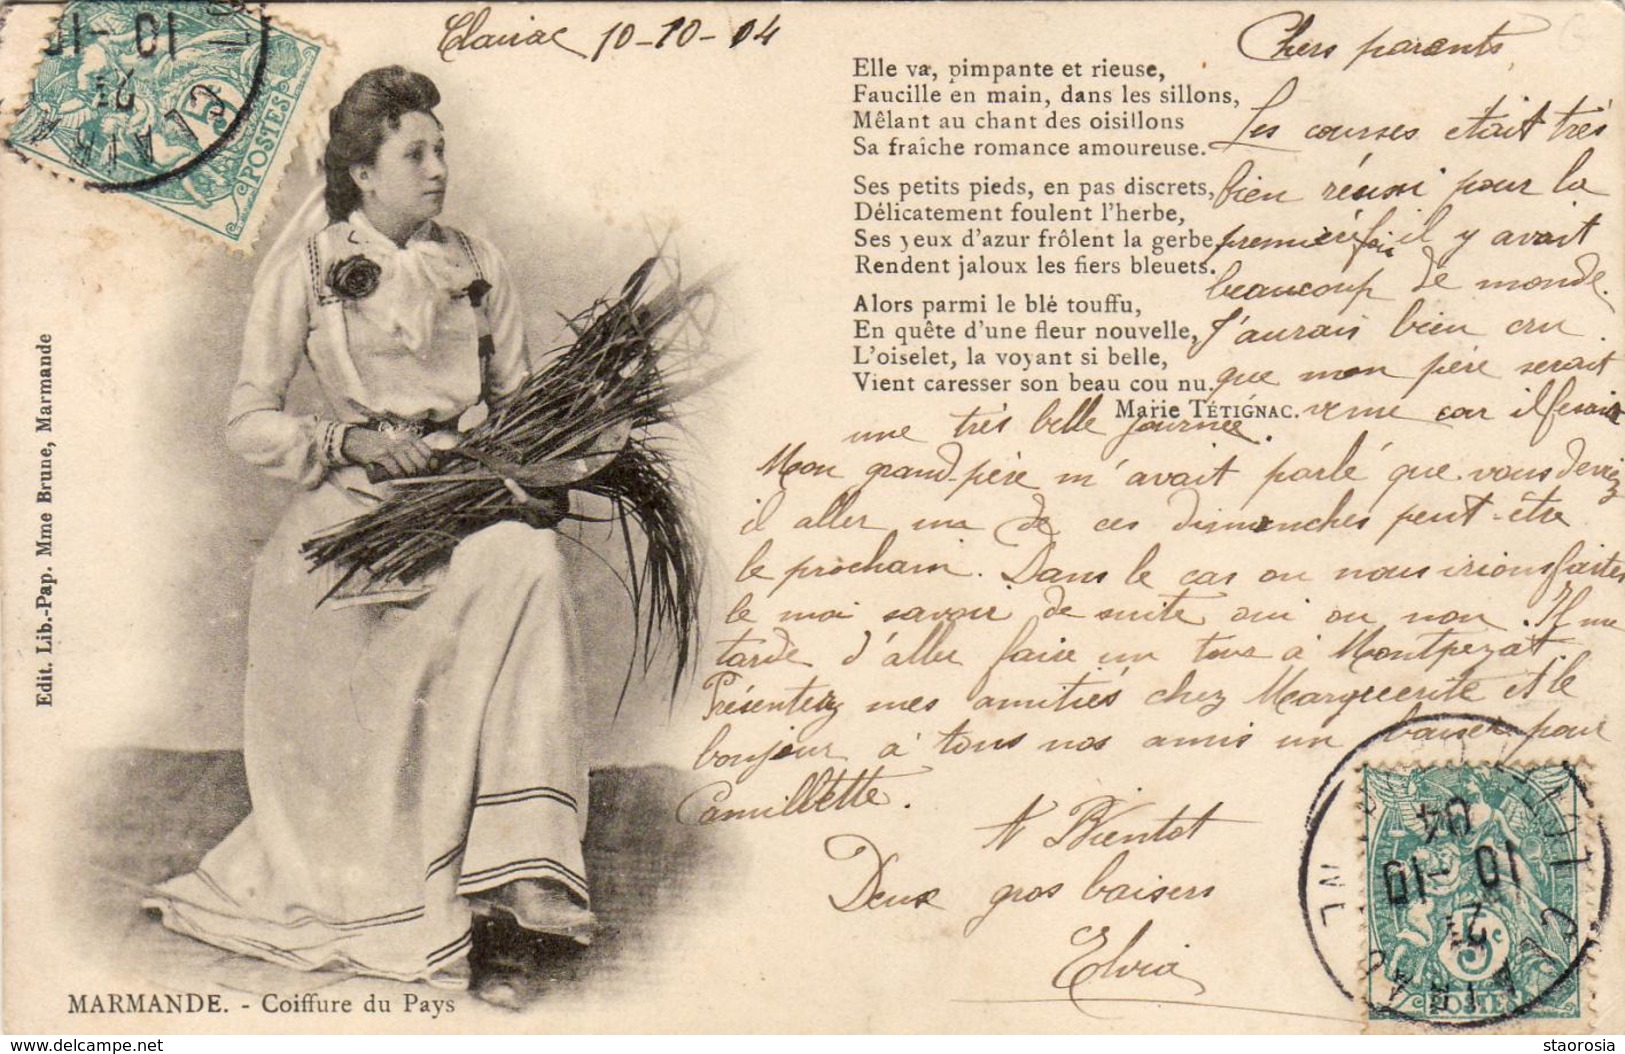 Clairac 10-10-04
Elle va, pimpante et rieuse,
Faucille en main, dans les sillons,
Mêlant au chant des oisillons
Sa fraiche romance amoureuse.
Ses petits pieds, en pas discrets,
Délicatement foulent l'herbe,
Ses yeux d'azur frôlent la gerbe
Rendent jaloux les fiers bleuets.
Alors parmi le blé touffu,
En quête d'une fleur nouvelle,
L'oiselet, la voyant si belle,
Vient caresser son beau cou nu.
Marie TÉTIGNAC.
Chers parents,
Les courses etait très
bien réussi pour la
première fois il y avait
beaucoup de monde.
J'aurais bien cru
que mon père serait
venu car il fesait
une très belle journée.
Mon grand-père m'avait parlé que vous deviez
il aller un de ces dimanches peut-être
le prochain. Dans le cas ou nous irions faites
le moi savoir de suite oui ou non. Il me
tarde d'aller faire un tour à Montpezat.
Présentez mes amitiés chez Marguerite et le
bonjour à tous nos amis un baiser pour
Camillette.
A Bientot
Deux gros baisers
Elvia
Edit. Lib.-Pap. Mme Brune, Marmande
MARMANDE. - Coiffure du Pays
5c
POSTES
CLAIRAC
10 -10
5c
POSTES
CLAIRAC
LOT-ET-
10 -10
04
delcampe.net
staorosia